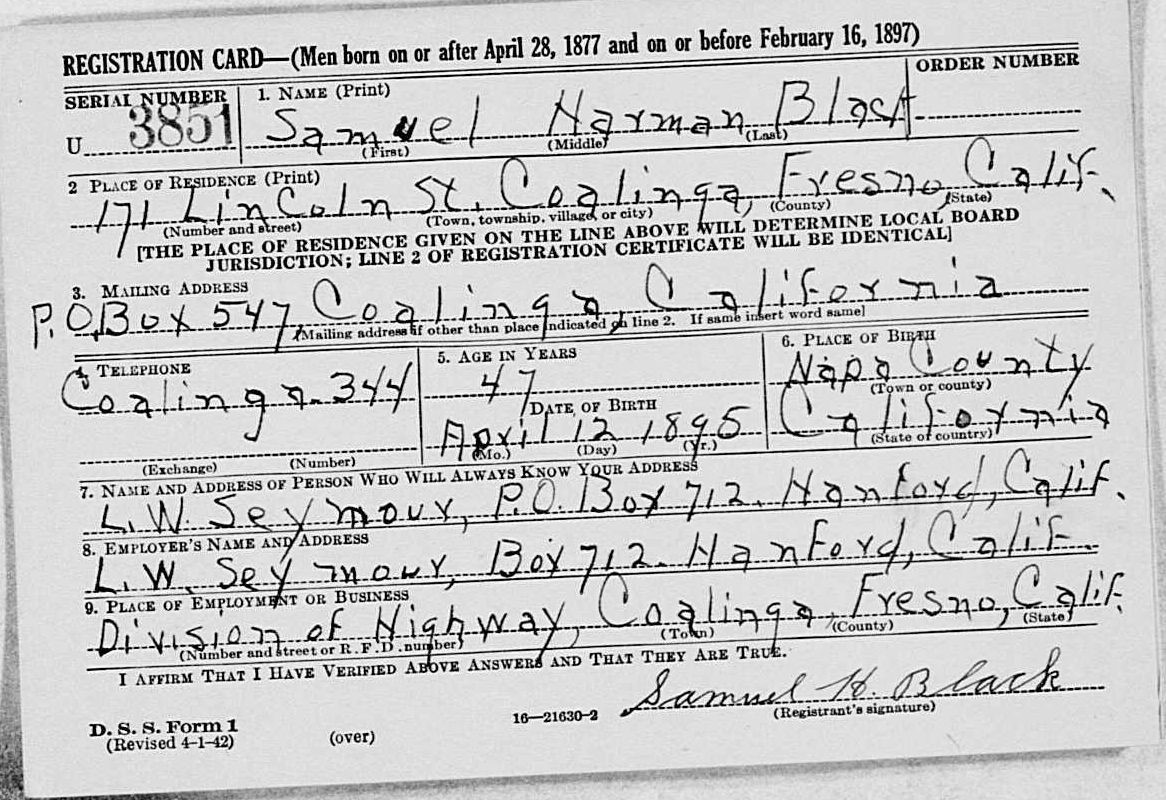 REGISTRATION CARD—(Men born on or after April 28, 1877 and on or before February 16, 1897)
SERIAL NUMBER
1. NAME (Print)
ORDER NUMBER
U 3851
Samuel Harman Black
(First) (Middle) (Last)
2 PLACE OF RESIDENCE (Print)
171 LinColn St. Coalinga, Fresno, Calif.
(Number and street) (Town, township, village, or city) (County) (State)
[THE PLACE OF RESIDENCE GIVEN ON THE LINE ABOVE WILL DETERMINE LOCAL BOARD
JURISDICTION; LINE 2 OF REGISTRATION CERTIFICATE WILL BE IDENTICAL]
3. MAILING ADDRESS
P.O. Box 547, Coalinga, California
[Mailing address if other than place indicated on line 2. If same insert word same]
4. TELEPHONE
Coalinga-344
(Exchange) (Number)
5. AGE IN YEARS
47
DATE OF BIRTH
April 12 1895
(Mo.) (Day) (Yr.)
6. PLACE OF BIRTH
Napa County
(Town or county)
California
(State or country)
7. NAME AND ADDRESS OF PERSON WHO WILL ALWAYS KNOW YOUR ADDRESS
L.W. Seymour, P.O. Box 712. Hanford, Calif.
8. EMPLOYER'S NAME AND ADDRESS
L.W. Seymour, Box 712. Hanford, Calif.
9. PLACE OF EMPLOYMENT OR BUSINESS
Division of Highway, Coalinga, Fresno, Calif.
(Number and street or R. F. D. number) (Town) (County) (State)
I AFFIRM THAT I HAVE VERIFIED ABOVE ANSWERS AND THAT THEY ARE TRUE.
Samuel H. Black
(Registrant's signature)
D. S. S. Form 1
(Revised 4-1-42)
(over)
16—21630-2